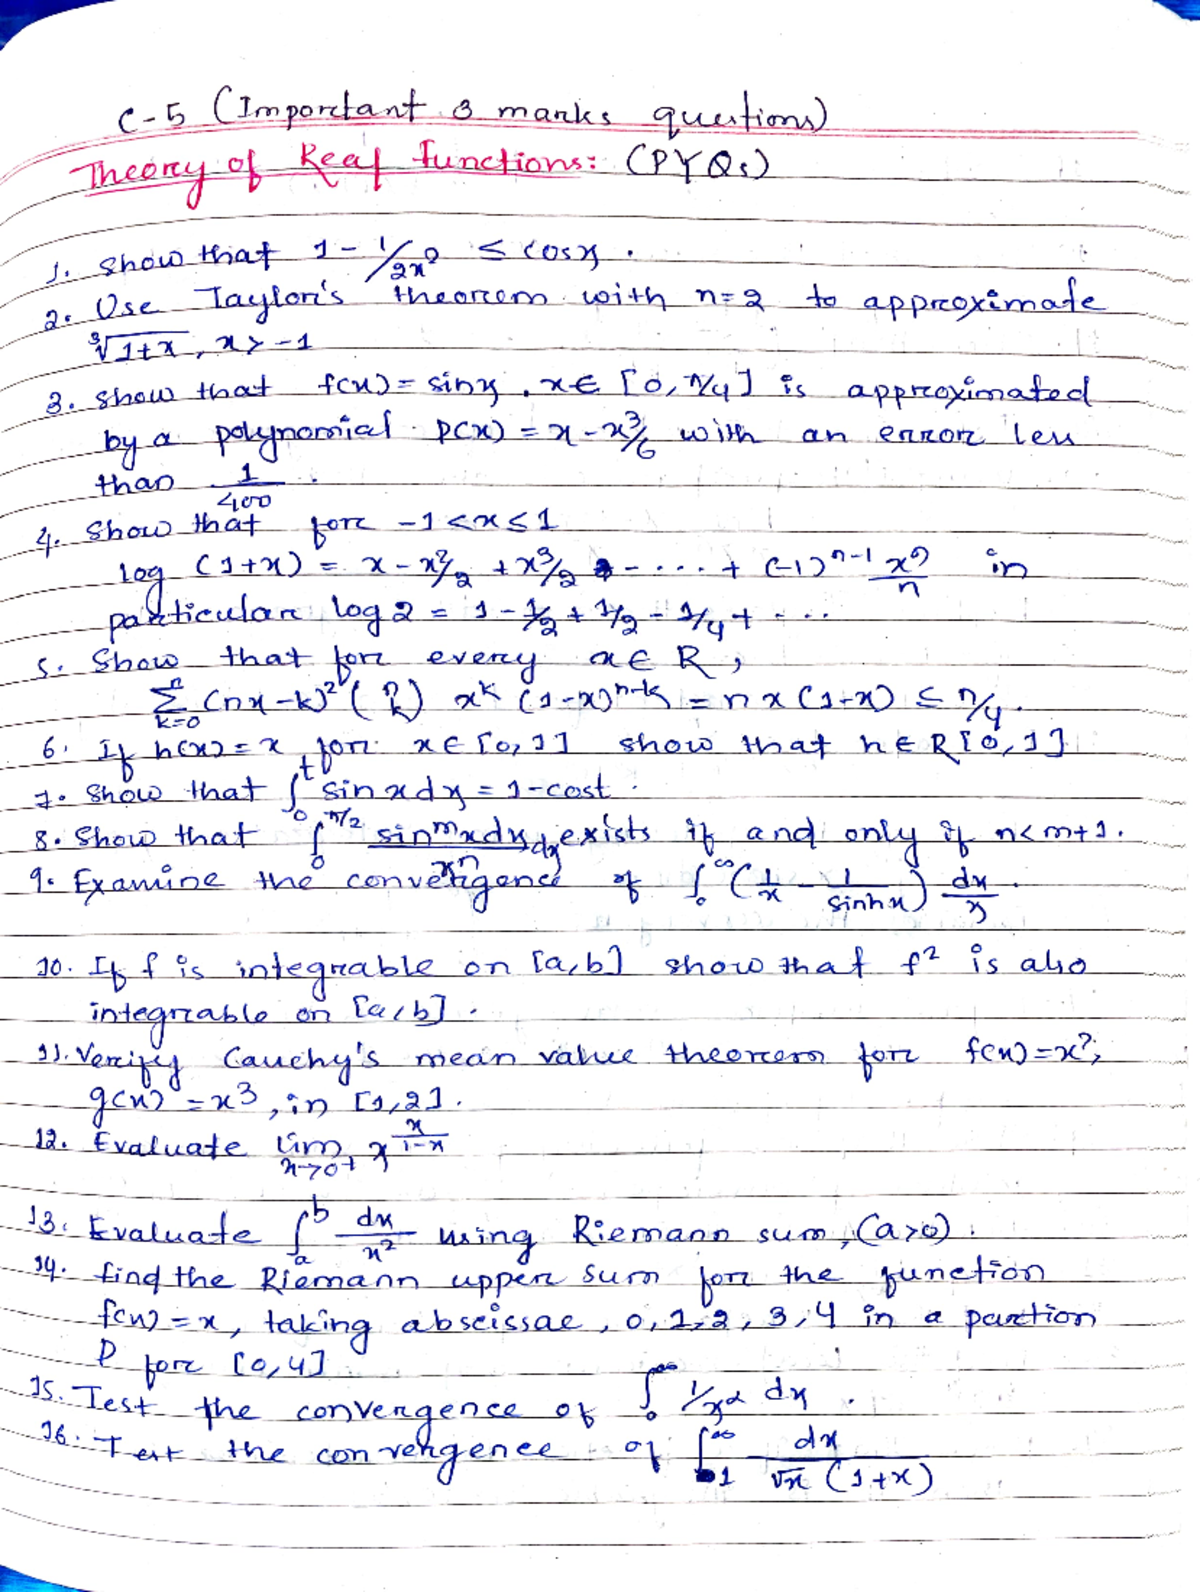 C-5 (Important 3 marks questions)
Theory of Real functions: (PYQs)
1. Show that 1 - 1/2x² ≤ cosx.
2. Use Taylor's theorem with n=2 to approximate
∛1+x, x > -1
3. Show that f(x) = sinx, x∈ [0, π/4] is approximated
by a polynomial P(x) = x - x³/6 with an error less
than 1/400.
4. Show that for -1 < x ≤ 1
log (1+x) = x - x²/2 + x³/3 - .... + (-1)ⁿ⁻¹ xⁿ/n in
particular log 2 = 1 - 1/2 + 1/3 - 1/4 + ....
5. Show that for every x∈ R,
∑ₖ₌₀ⁿ (nx-k)² (n k) xᵏ (1-x)ⁿ⁻ᵏ = nx(1-x) ≤ n/4.
6. If h(x) = x for x∈ [0,1] show that h∈ R[0,1]
7. Show that ∫₀ᵗ sinxdx = 1-cost.
8. Show that ∫₀^π/2 sinᵐxdx/xⁿ dx exists if and only if n<m+1.
9. Examine the convergence of ∫₀^∞ (1/x - 1/sinhx) dx/x.
10. If f is integrable on [a,b] show that f² is also
integrable on [a,b].
11. Verify Cauchy's mean value theorem for f(x)=x²,
g(x) = x³, in [1,2].
12. Evaluate lim x→0+ x^x/1-x
13. Evaluate ∫ₐᵇ dx/x² using Riemann sum, (a>0).
14. find the Riemann upper sum for the function
f(x) = x, taking abscissae, 0,1,2,3,4 in a partion
P for [0,4]
15. Test the convergence of ∫₀^∞ 1/x^α dx.
16. Test the convergence of ∫₁^∞ dx/√x (1+x)